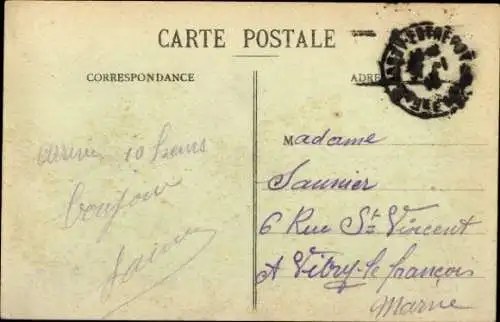 CARTE POSTALE
CORRESPONDANCE
ADRE
Madame
Saunier
6 Rue St Vincent
A Vitry-le françois
Marne
10 heures
bonjour